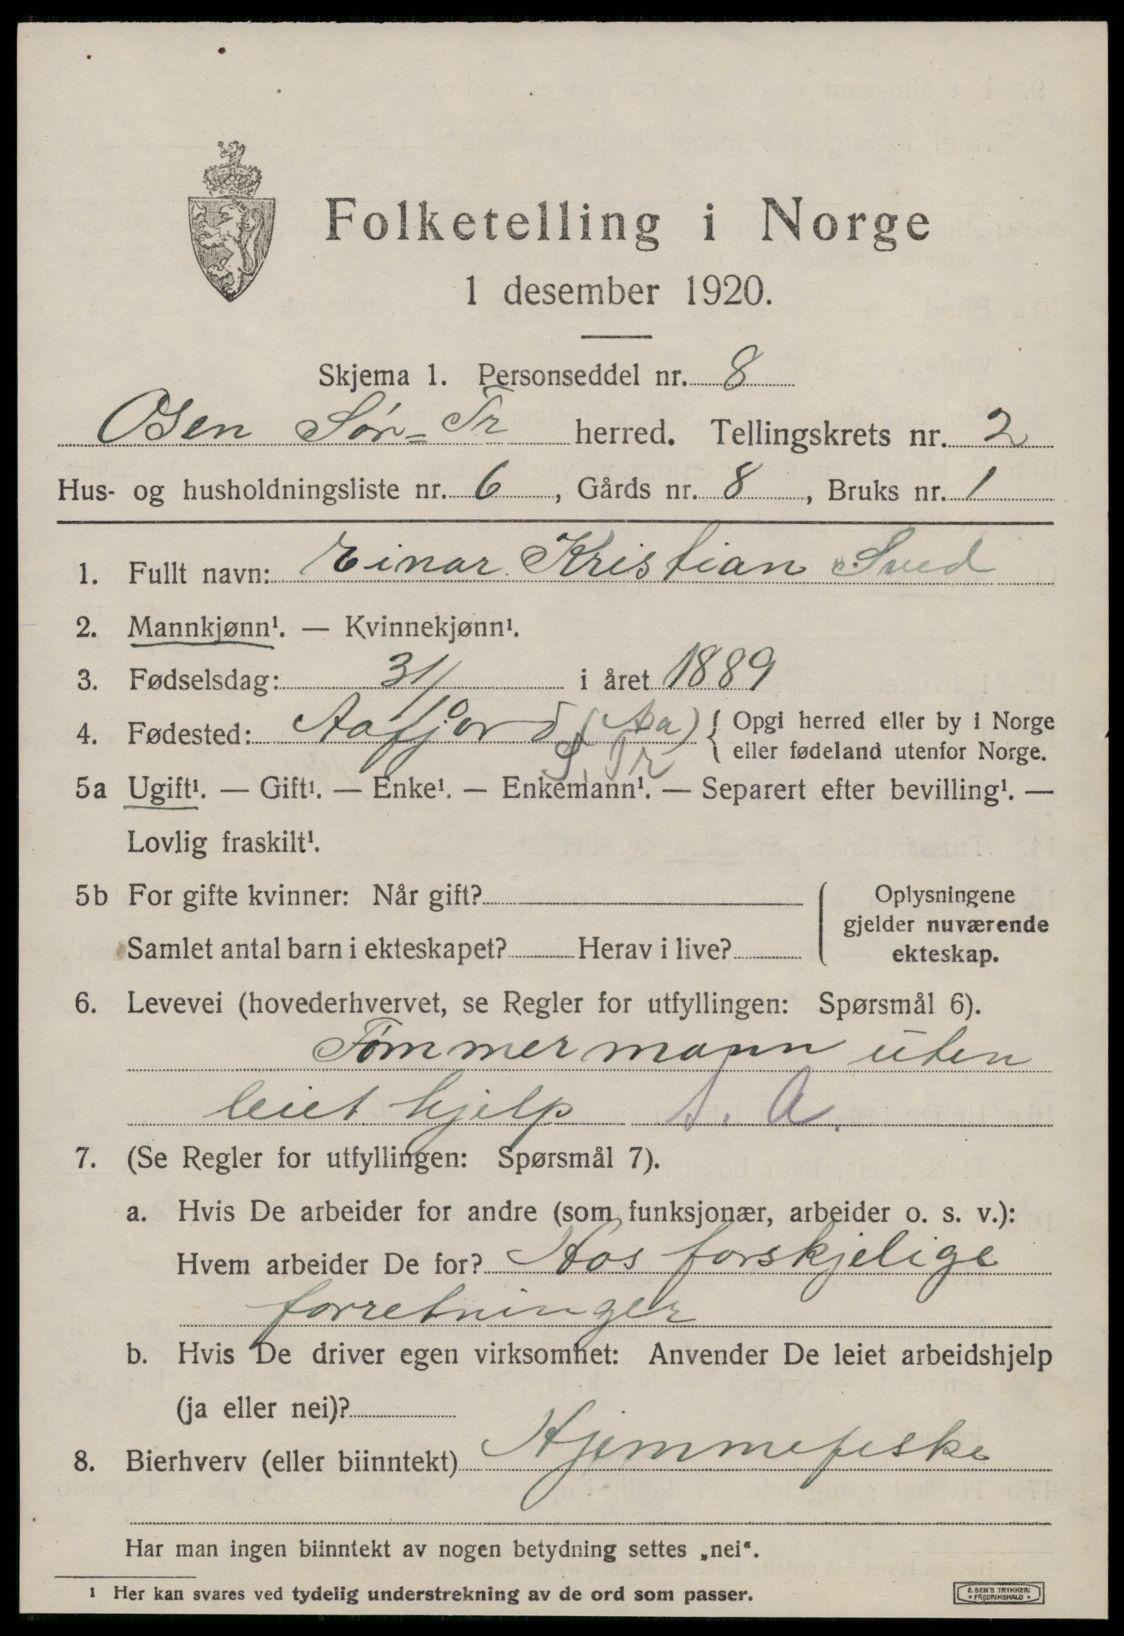 Folketelling i Norge
1 desember 1920.
Skjema 1. Personseddel nr. 8
Osen Sør-Tr herred. Tellingskrets nr. 2
Hus- og husholdningsliste nr. 6, Gårds nr. 8, Bruks nr. 1
1. Fullt navn: Einar Kristian Sved
2. Mannkjønn¹. — Kvinnekjønn¹.
3. Fødselsdag: 31/10 i året 1889
4. Fødested: Aafjord (Aa) { Opgi herred eller by i Norge
S. Tr eller fødeland utenfor Norge.
5a Ugift¹. — Gift¹. — Enke¹. — Enkemann¹. — Separert efter bevilling¹. —
Lovlig fraskilt¹.
5b For gifte kvinner: Når gift? { Oplysningene
gjelder nuværende
Samlet antal barn i ekteskapet? Herav i live? ekteskap.
6. Levevei (hovederhvervet, se Regler for utfyllingen: Spørsmål 6).
Tømmermann uten
leiet hjelp S. A.
7. (Se Regler for utfyllingen: Spørsmål 7).
a. Hvis De arbeider for andre (som funksjonær, arbeider o. s. v.):
Hvem arbeider De for? Hos forskjelige
forretninger
b. Hvis De driver egen virksomhet: Anvender De leiet arbeidshjelp
(ja eller nei)?
8. Bierhverv (eller biinntekt) Hjemmefiske
Har man ingen biinntekt av nogen betydning settes „nei“.
¹ Her kan svares ved tydelig understrekning av de ord som passer.
E. SEM'S TRYKKERI
• FREDRIKSHALD •